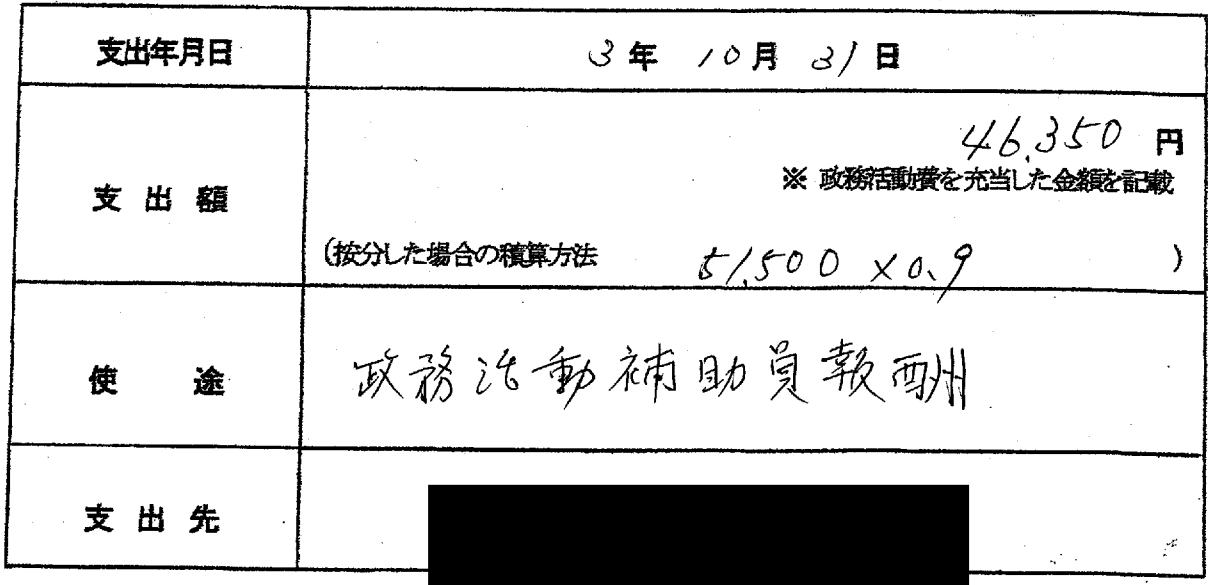 支出年月日 3年 10月 31日
46,350 円
※ 政務活動費を充当した金額を記載
支出額
(按分した場合の積算方法 51,500 ×0.9 )
使途 政務活動補助員報酬
支出先